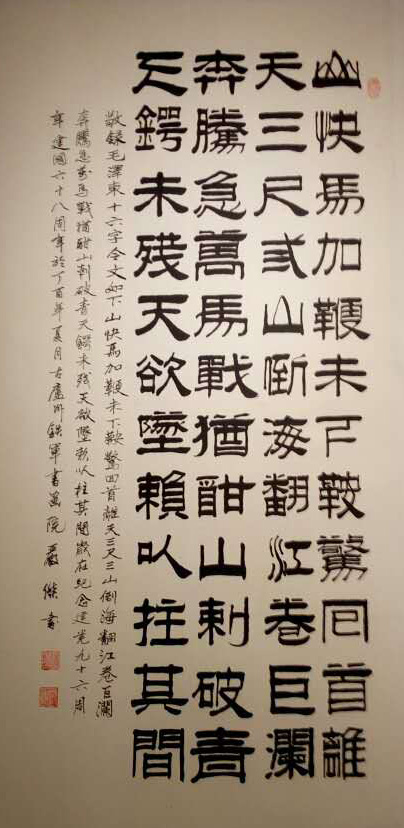 山快馬加鞭未下鞍驚回首離
天三尺弎山倒海翻江卷巨瀾
奔騰急萬馬戰猶酣山刺破青
天鍔未殘天欲墜賴以拄其間
敬録毛澤東十六字令文如下山快馬加鞭未下鞍驚回首離天三尺三山倒海翻江卷巨瀾
奔騰急萬馬戰猶酣山刺破青天鍔未殘天欲墜賴以拄其間歲在紀念建党九十六周
年建國六十八周年於丁酉年夏月古廬州鐵軍書畫院嚴傑書